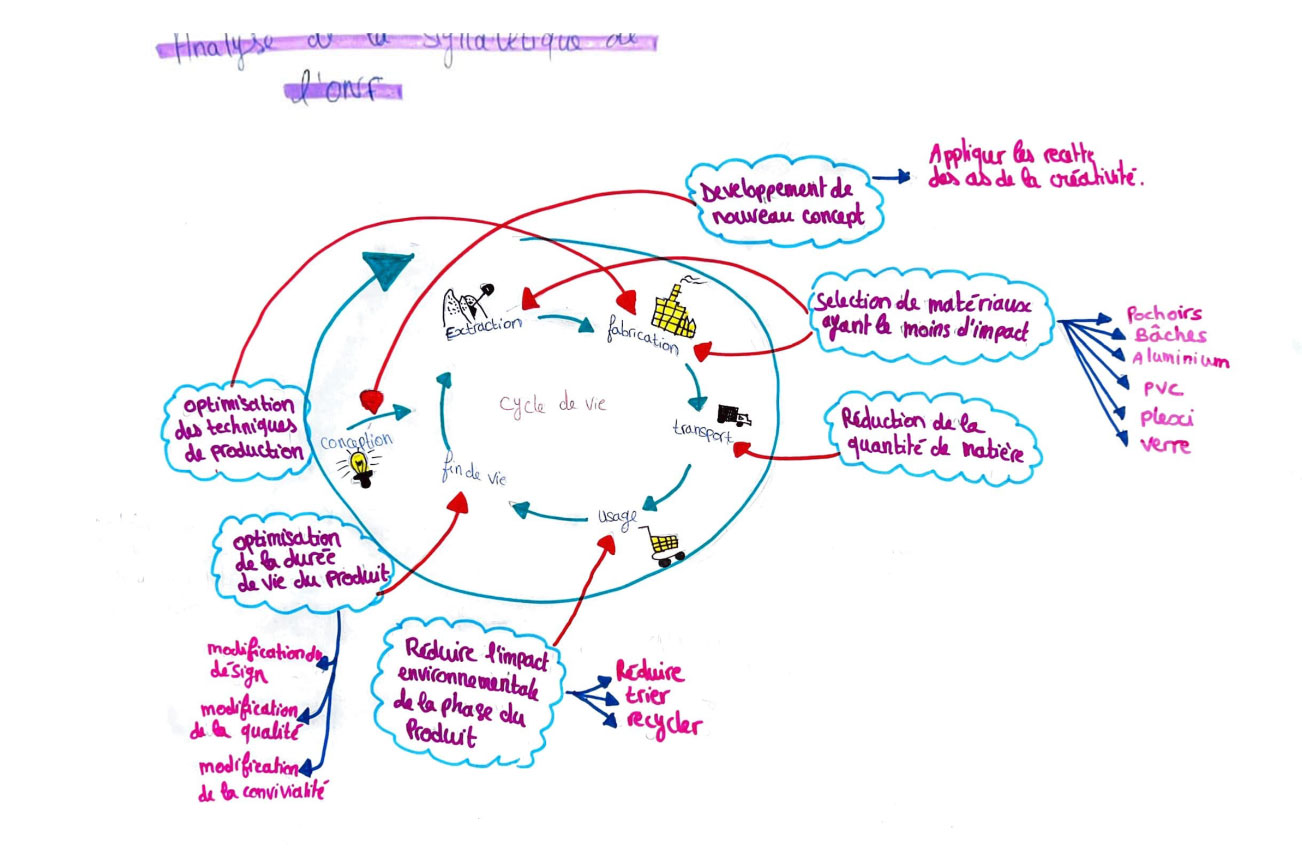 Analyse de la signalétique de
l'ONF
Developpement de
nouveau concept
Appliquer les recette
des as de la créativité.
Selection de matériaux
ayant le moins d'impact
Pochoirs
Bâches
Aluminium
PVC
plexi
verre
Extraction
fabrication
Cycle de vie
transport
Réduction de la
quantité de matière
optimisation
des techniques
de production
conception
fin de vie
usage
optimisation
de la durée
de vie du produit
modification du
désign
modification
de la qualité
modification
de la convivialité
Réduire l'impact
environnementale
de la phase du
Produit
Réduire
trier
recycler